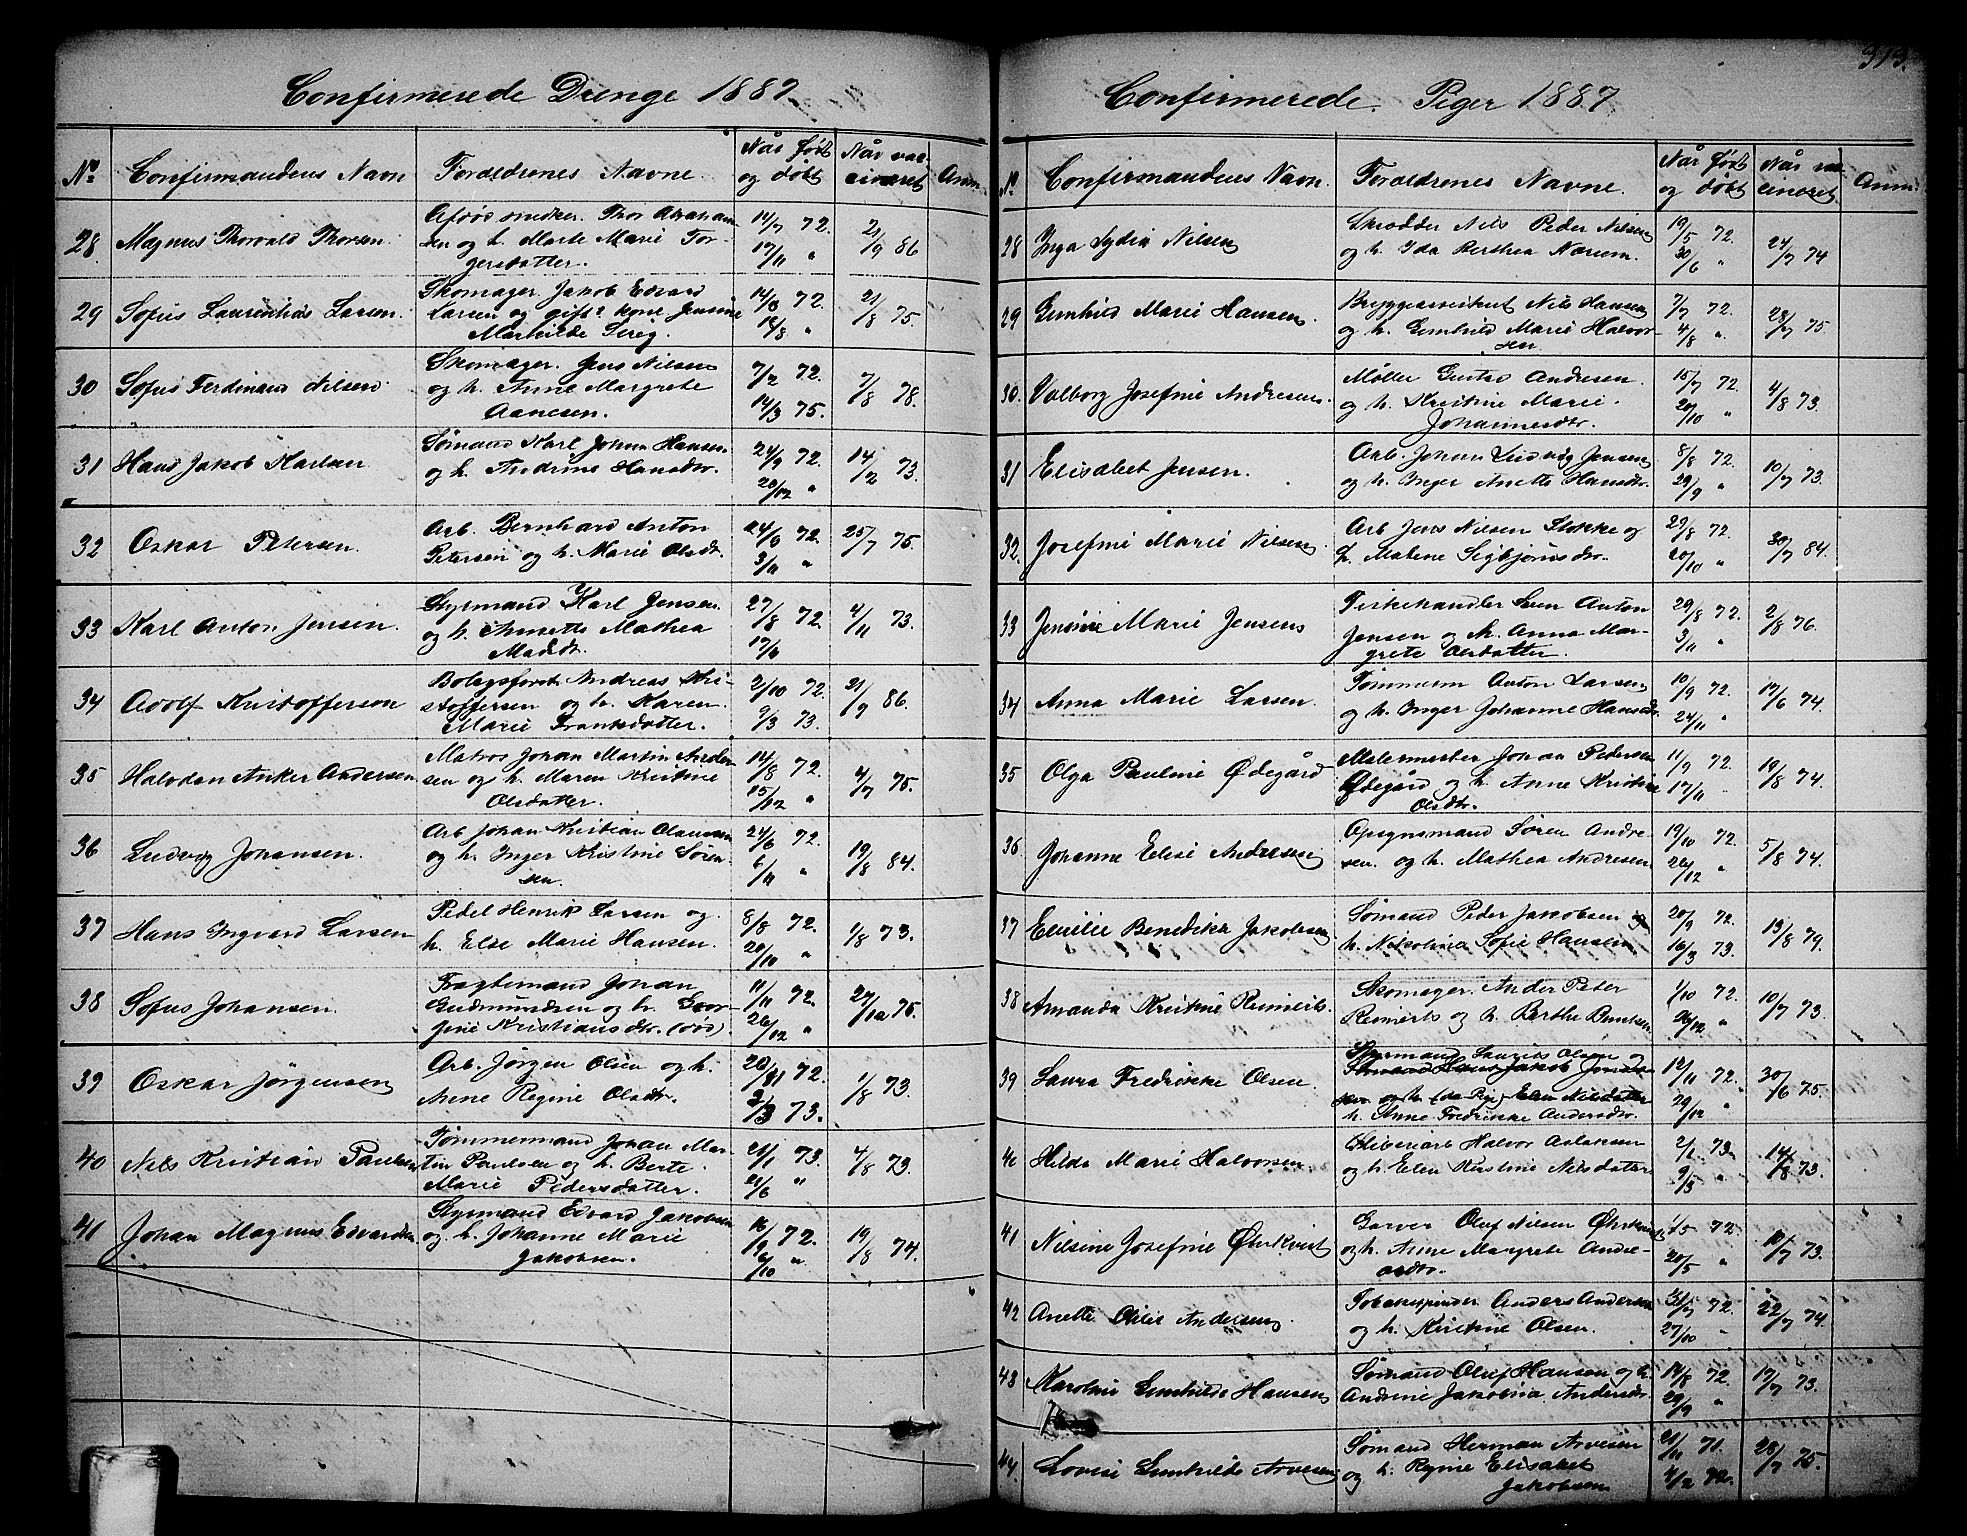 Confirmerede Drenge 1887.
No Confirmandens Navn Forældrenes Navne. Når født og døbt Når vaccineret Anm.
28 Magnus Thorvald Thorsen. Afdøs smedker. Thor Abraham
sen og h. Marte Marie Tor
gersdatter. 14/7 72. 17/11 " 21/9 86
29 Sofus Laurentius Larsen. Skomager Jakob Edvard
Larsen og gift kone Jensine
Mathilde Sireg. 14/3 72. 14/8 " 21/8 75.
30 Sofus Ferdinand Nilsen Skomager. Jens Nilsen
og h. Anne Margrete
Aanesen. 7/2 72. 14/3 75. 7/8 78.
31 Hans Jakob Karlsen Sømand Karl Johan Hansen
og h. Andrine Hansdtr. 24/9 72. 20/12 " 14/2 73.
32 Oskar Petersen. Arb. Bernhard Anton
Petersen og h. Marie Olsdtr. 24/9 72. 3/11 " 25/7 75.
33 Karl Anton Jensen. Styrmand Karl Jensen
og h. Annette Mathea
Madsdtr. 27/8 72. 4/11 73.
34 Adolf Kristofferson Bolagsforst. Andreas Kri-
stoffersen og h. Karen
Marie Franksdatter. 2/10 72. 9/3 73. 21/9 86.
35 Halvdan Anker Andersen Matros Johan Martin Ander
sen og h. Maren Kristine
Olsdatter. 14/8 72. 15/12 " 4/7 75.
36 Ludvig Johansen. Arb. Johan Kristian Olaussen
og h. Inger Kristine Søren-
sen. 24/6 72. 6/11 " 19/8 84.
37 Hans Ingvard Larsen Pedel Henrik Larsen og
h. Else Marie Hansen. 8/8 72. 20/10 " 1/8 73.
38 Sofus Johansen. Fragtemand Johan
Gudmundsen og h. Geor-
gine Kristiansdtr. (død) 11/11 72. 26/12 " 27/12 75.
39 Oskar Jørgensen Arb. Jørgen Olsen og h.
Anne Regine Olsdtr. 20/11 72. 2/3 73. 1/8 73.
40 Nils Kristian Paulsen Tømmermand Johan Mar-
tin Paulsen og h. Berte
Marie Pedersdatter. 21/1 73. 21/6 " 4/8 73.
41 Johan Magnus Edvardsen Styrmand Edvard Jakobsen
og h. Johanne Marie
Jakobsen. 16/9 72. 6/10 " 19/8 74.
373.
Confirmerede Piger 1887
No Confirmandens Navn. Forældrenes Navne. Når født og døbt Når vaccineret Anm.
28 Inga Lydia Nilsen Skrædder Nils Peder Nilsen
og h. Ida Berthea Narum. 19/5 72. 30/6 " 24/7 74
29 Gunhild Marie Hansen Bryggearbeidet Nils Hansen
og h. Gunhild Marie Halvor
sen. 7/7 72. 4/8 " 28/7 75
30. Valborg Josefine Andresen. Møller Gustav Andresen.
og h. Kristine Marie
Johannesdtr. 15/7 72. 20/10 " 4/8 73.
31 Elisabet Jensen. Arb. Johan Ludvig Jensen
og h. Inger Anette Hansdtr. 8/8 72. 29/9 " 10/7 73.
32. Josefine Marie Nilsen Arb Jens Nilsen Stokke og
h. Malene Sigbjørnsdtr. 29/8 72. 20/10 " 30/7 84.
33 Jensine Marie Jensens Fiskehandler Sven Anton
Jensen og h. Anna Mar-
grete Olsdatter. 29/8 72. 3/11 " 2/8 76.
34 Anna Marie Larsen. Tømmerm Anton Larsen
og h. Inger Johanne Hansdtr. 10/9 72. 24/11 " 17/6 74.
35 Olga Pauline Ødegård Malermester Johan Pedersen
Ødegård og h. Anne Kristine
Olsdtr. 11/9 72. 17/11 " 19/8 74.
36 Johanne Elise Andresen Opsynsmand Søren Andre
sen. og h. Mathea Andresen 19/10 72. 26/12 " 5/8 74.
37 Emilie Benedikte Jakobsen Sømand Peder Jakobsen og
h. Nikoline Sofie Hansen 20/9 72. 16/3 73. 13/8 79.
38 Amanda Kristine Reinerts. Skomager. Ander Peter
Reinerts og h. Berthe Bentsen 1/10 72. 26/12 " 10/7 73.
39 Laura Fredrikke Olsen. Styrmand Laurits Olsen og
Sømand Hans Jakob
h. Anne Fredrikke Andersdtr. 12/11 72. 29/12 " 30/6 75.
40 Hilda Marie Halvorsen Sliberiarb Halvor Aslaksen
og h. Elen Kirstine Nilsdatter 2/1 73. 9/3 " 14/8 73.
41 Nilsine Josefine Öhrkvist Garver Oluf Nilsen Öhrkvist
og h. Anne Margrete Andre-
asdtr. 1/5 72. 20/5 " 10/7 73.
42 Anette Othilie Andersen. Tobakspinder Anders Andersen
og h. Kristine Olsen. 21/7 72. 27/10 " 22/7 74.
43 Karoline Gunhilde Hansen Sømand Oluf Hansen og h.
Andrine Jakobina Andersdtr. 14/8 72. 29/9 " 17/7 73.
44 Lovise Gunhilde Arvesen Sømand Herman Arvesen
og h. Regine Elisabet
Jakobsen 21/11 71. 4/2 72. 28/7 75.